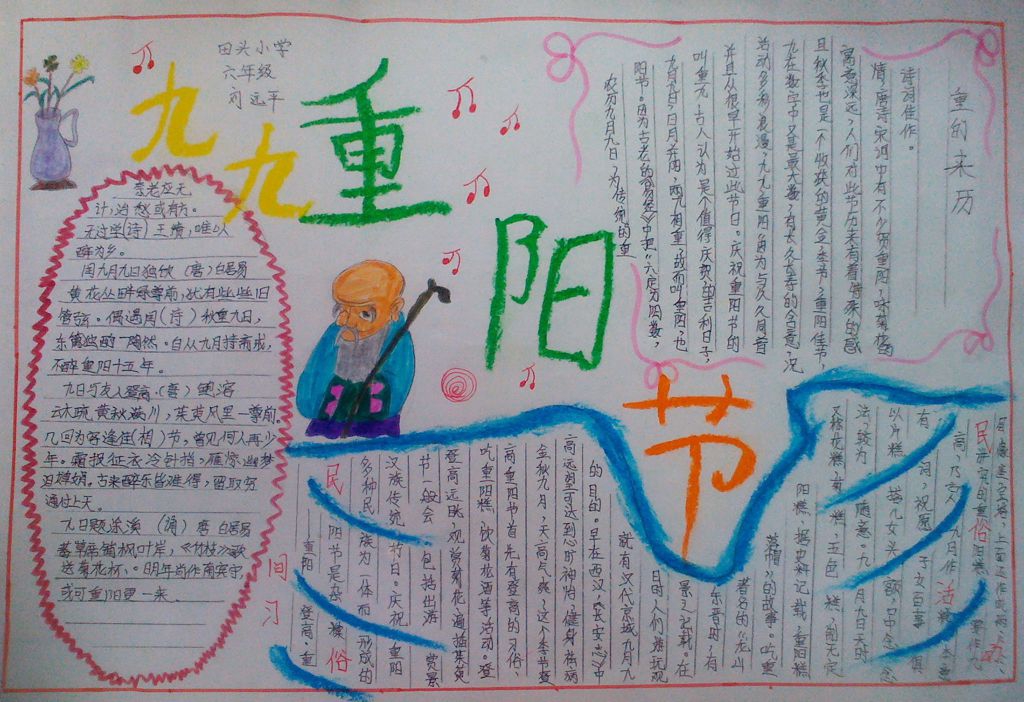 田头小学
六年级
刘远平
九九重阳节
重的来历
诗词佳作。
情,唐诗宋词中有不少贺重阳,咏菊花的
寓意深远,人们对此节历来有着特殊的感
且秋季也是一个收获的黄金季节,重阳佳节,
九在数字中又是最大数,有长久长寿的含意,况
活动多彩浪漫,九九重阳,因为与久久同音
并且从很早开始过此节日。庆祝重阳节的
叫重九,古人认为是个值得庆贺的吉利日子,
九月九日,日月并阳,两九相重,故而叫重阳,也
阳节。因为古老的《易经》中把“六”定为阴数,
农历九月九日,为传统的重
李老应无
计,治愁或有方。
无过学(诗)王绩,唯以
醉为乡。
闰九月九日独饮(唐)白居易
黄花丛畔绿尊前,犹有些些旧
管弦。偶遇闰(诗)秋重九日,
东篱独酌一陶然。自从九月持斋戒,
不醉重阳十五年。
九日与友人登高,(唐)
云木疏黄秋满川,茱萸风里一尊前。
几回为客逢佳(相)节,曾见何人再少
年。霜报征衣冷针指,雁惊幽梦
泪婵娟。古来醉乐皆难得,留取穷
通付上天。
九日题涂溪(诵)唐 白居易
蕃草席铺枫叶岸,《竹枝》歌
送菊花杯、。明年尚作南宾守,
或可重阳更一来
民间习俗
重阳 登高,重
阳节是杂糅
多种民族为一体而形成的
汉族传统节日。庆祝重阳
节一般会包括出游赏景
登高远眺,观赏菊花,遍插茱萸
吃重阳糕,饮菊花酒等活动。登
高重阳节首先有登高的习俗,
金秋九月,天高气爽,这个季节登
高远望可达到心旷神怡,健身祛病
的目的。早在西汉,《长安志》中
就有汉代京城九月九
日时人们游玩观
景之记载。在
东晋时,有
著名的“龙山
落帽”的故事。吃重
阳糕 据史料记载,重阳糕
又称花糕,菊糕,五色糕,制无定
法,较为随意。九月九日天明时
以片糕搭儿女头额,口中念念
有词,祝愿子女百事俱
高,乃古人九月作糕的本意
民俗活动